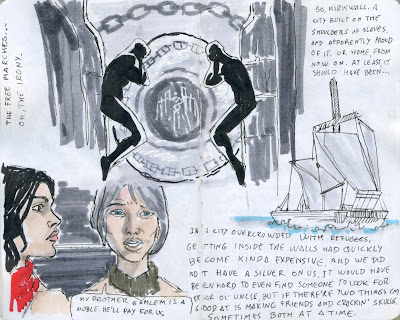 THE FREE MARCHES...
OH, THE IRONY.
SO, KIRKWALL. A
CITY BUILT ON THE
SHOULDERS OF SLAVES,
AND APPARENTLY PROUD
OF IT. OR HOME, FROM
NOW ON. AT LEAST, IT
SHOULD HAVE BEEN...
IN A CITY OVERCROWDED WITH REFUGEES,
GETTING INSIDE THE WALLS HAD QUICKLY
BECOME KINDA EXPENSIVE AND WE DID
NOT HAVE A SILVER ON US. IT WOULD HAVE
BEEN HARD TO EVEN FIND SOMEONE TO LOOK FOR
DEAR OL' UNCLE, BUT IF THERE'RE TWO THINGS I'M
GOOD AT IS MAKING FRIENDS AND CRACKIN' SKULLS,
SOMETIMES BOTH AT A TIME.
MY BROTHER GAMLEM IS A
NOBLE. HE'LL PAY FOR US.